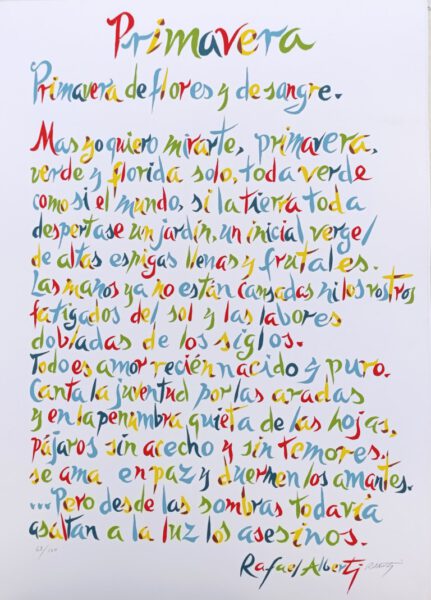 Primavera
Primavera de flores y de sangre.
Mas yo quiero mirarte, primavera,
verde y florida solo, toda verde
como si el mundo, si la tierra toda
despertase un jardín, un inicial vergel
de altas espigas llenas y frutales.
Las manos ya no están cansadas ni los rostros
fatigados del sol y las labores
dobladas de los siglos.
Todo es amor recién nacido y puro.
Canta la juventud por las aradas
y en la penumbra quieta de las hojas,
pájaros sin acecho y sin temores,
se ama en paz y duermen los amantes.
...Pero desde las sombras todavía
asaltan a la luz los asesinos.
Rafael Alberti